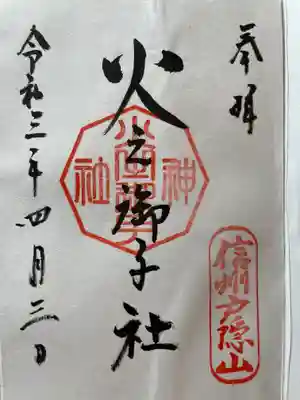 奉拝
信州戸隠山
火之御子社
神社
令和三年四月三日